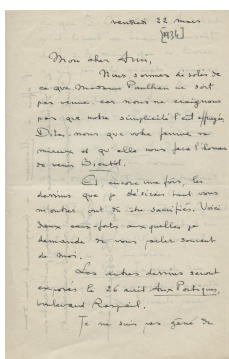 vendredi 22 mars
[1934]
Mon cher Ami,
Nous sommes désolés de
ce que Madame Paulhan ne soit
pas venue. car nous ne craignons
pas que notre simplicité l'ait effrayée
Dites-nous que votre femme va
mieux et qu'elle nous fera l'honneur
de venir bientôt.
Et, encore une fois, les
dessins que je désirais tant vous
montrer ont été sacrifiés. Voici
deux eaux-fortes auxquelles je
demande de vous parler souvent
de moi.
Les autres dessins seront
exposés le 26 avril Aux Portiques,
boulevard Raspail.
Je ne suis pas gêné de